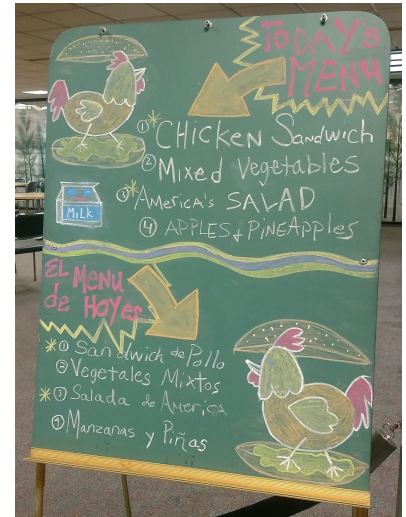 TODAY'S
MENU
① *CHICKEN Sandwich
② Mixed Vegetables
③ *America's SALAD
④ APPLES & PiNEApples
MiLK
EL MENU
de HOYes
* ① Sandwich de Pollo
② Vegetales Mixtos
* ③ Salada de America
④ Manzanas y Piñas